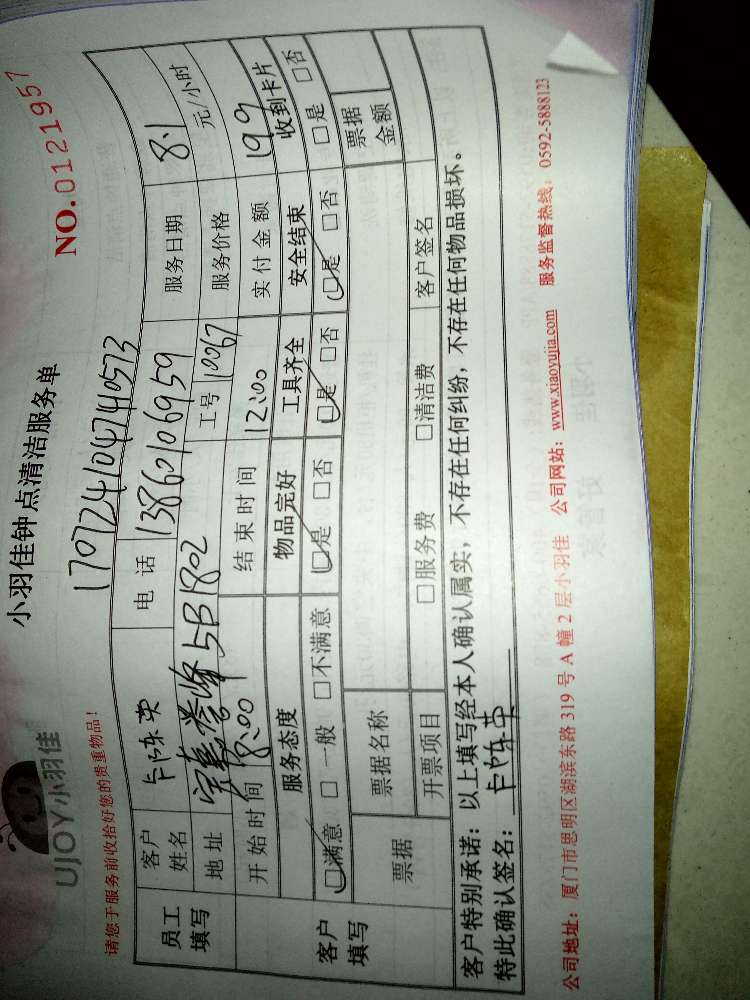 UJOY小羽佳
小羽佳钟点清洁服务单
NO.0121957
请您于服务前收拾好您的贵重物品!
170724104740573
员工填写 客户姓名 卡陈英 电话 13860106959 服务日期 8.1
地址 5B1802 工号 10067 服务价格 元/小时
开始时间 8:00 结束时间 12:00 实付金额 199
客户填写 服务态度 物品完好 工具齐全 安全结束 收到卡片
□满意 □一般 □不满意 □是 □否 □是 □否 □是 □否 □是 □否
票据 票据名称 票据金额
开票项目 □服务费 □清洁费 客户签名
客户特别承诺:以上填写经本人确认属实,不存在任何纠纷,不存在任何物品损坏。
特此确认签名:卡陈英
公司地址:厦门市思明区湖滨东路 319 号 A 幢 2 层小羽佳 公司网站:www.xiaoyujia.com 服务监督热线:0592-5888123